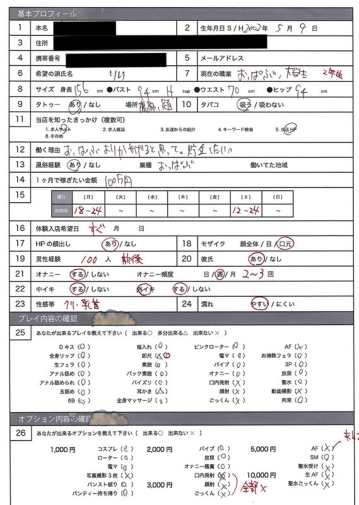 基本プロフィール
1 本名 2 生年月日 S / H 2002年 5月 9日
3 住所
4 携帯番号 5 メールアドレス
6 希望の源氏名 りり 7 現在の職業 おっぱぶ、大学生 2年生
8 サイズ 身長 156 cm ●バスト 94 cm H cup ●ウエスト 70 cm ●ヒップ 94 cm
9 タトゥー あり / なし 場所 10 タバコ 吸う / 吸わない
11 当店を知ったきっかけ (複数可)
1.求人サイト 2.求人雑誌 3.友達からの紹介 4.キーワード検索 5.当店HP
6.その他
12 働く理由
13 風俗経験 あり / なし 業種 おっぱぶ 働いてた地域
14 1ヶ月で稼ぎたい金額 100万円
15 曜日 [月] [火] [水] [木] [金] [土] [日]
18-24 ~ ~ ~ ~ 12-24 ~
16 体験入店希望日 すぐ 月 日
17 HPの顔出し あり / なし 18 モザイク 顔全体 / 目 / 口元
19 男性経験 100 人 前後 20 彼氏 あり / なし
21 オナニー する / しない オナニー頻度 日 / 週 / 月 2~3 回
22 中イキ する / しない 外イキ する / しない
23 性感帯 クリ・乳首 24 濡れ やすい / にくい
プレイ内容の確認
25 あなたが出来るプレイを教えて下さい ( 出来る○ 多分出来る△ 出来ない× )
Dキス (○) 指入れ (○) ピンクローター (○) AF (×)
全身リップ (○) 即尺 (△) 電マ (○) お掃除フェラ (○)
生フェラ (○) 素股 (○) バイブ (○) 3P (○)
アナル舐め (○) バック素股 (○) オナニー (○) 放尿 (○)
アナル舐められ (○) パイズリ (○) 口内発射 (×) 聖水 (○)
玉舐め (○) 耳かき (△) 顔射 (×) 動画撮影 (×)
69 (○) 全身マッサージ (○) ごっくん (×) 拘束 (○)
オプション内容の確認
26 あなたが出来るオプションを教えて下さい ( 出来る○ 出来ない× )
1,000円 コスプレ (○) 2,000円 バイブ (○) 5,000円 AF (×)
ローター (○) 放尿 (○) SM (○)
電マ (○) オナニー鑑賞 (○) 聖水受け (×)
写真撮影3枚 (×) 口内発射 (×) 10,000円 生AF (×)
パンスト破り (○) 3,000円 顔射 (×) 全部× 聖水ごっくん (×)
パンティー持ち帰り (○) ごっくん (×)